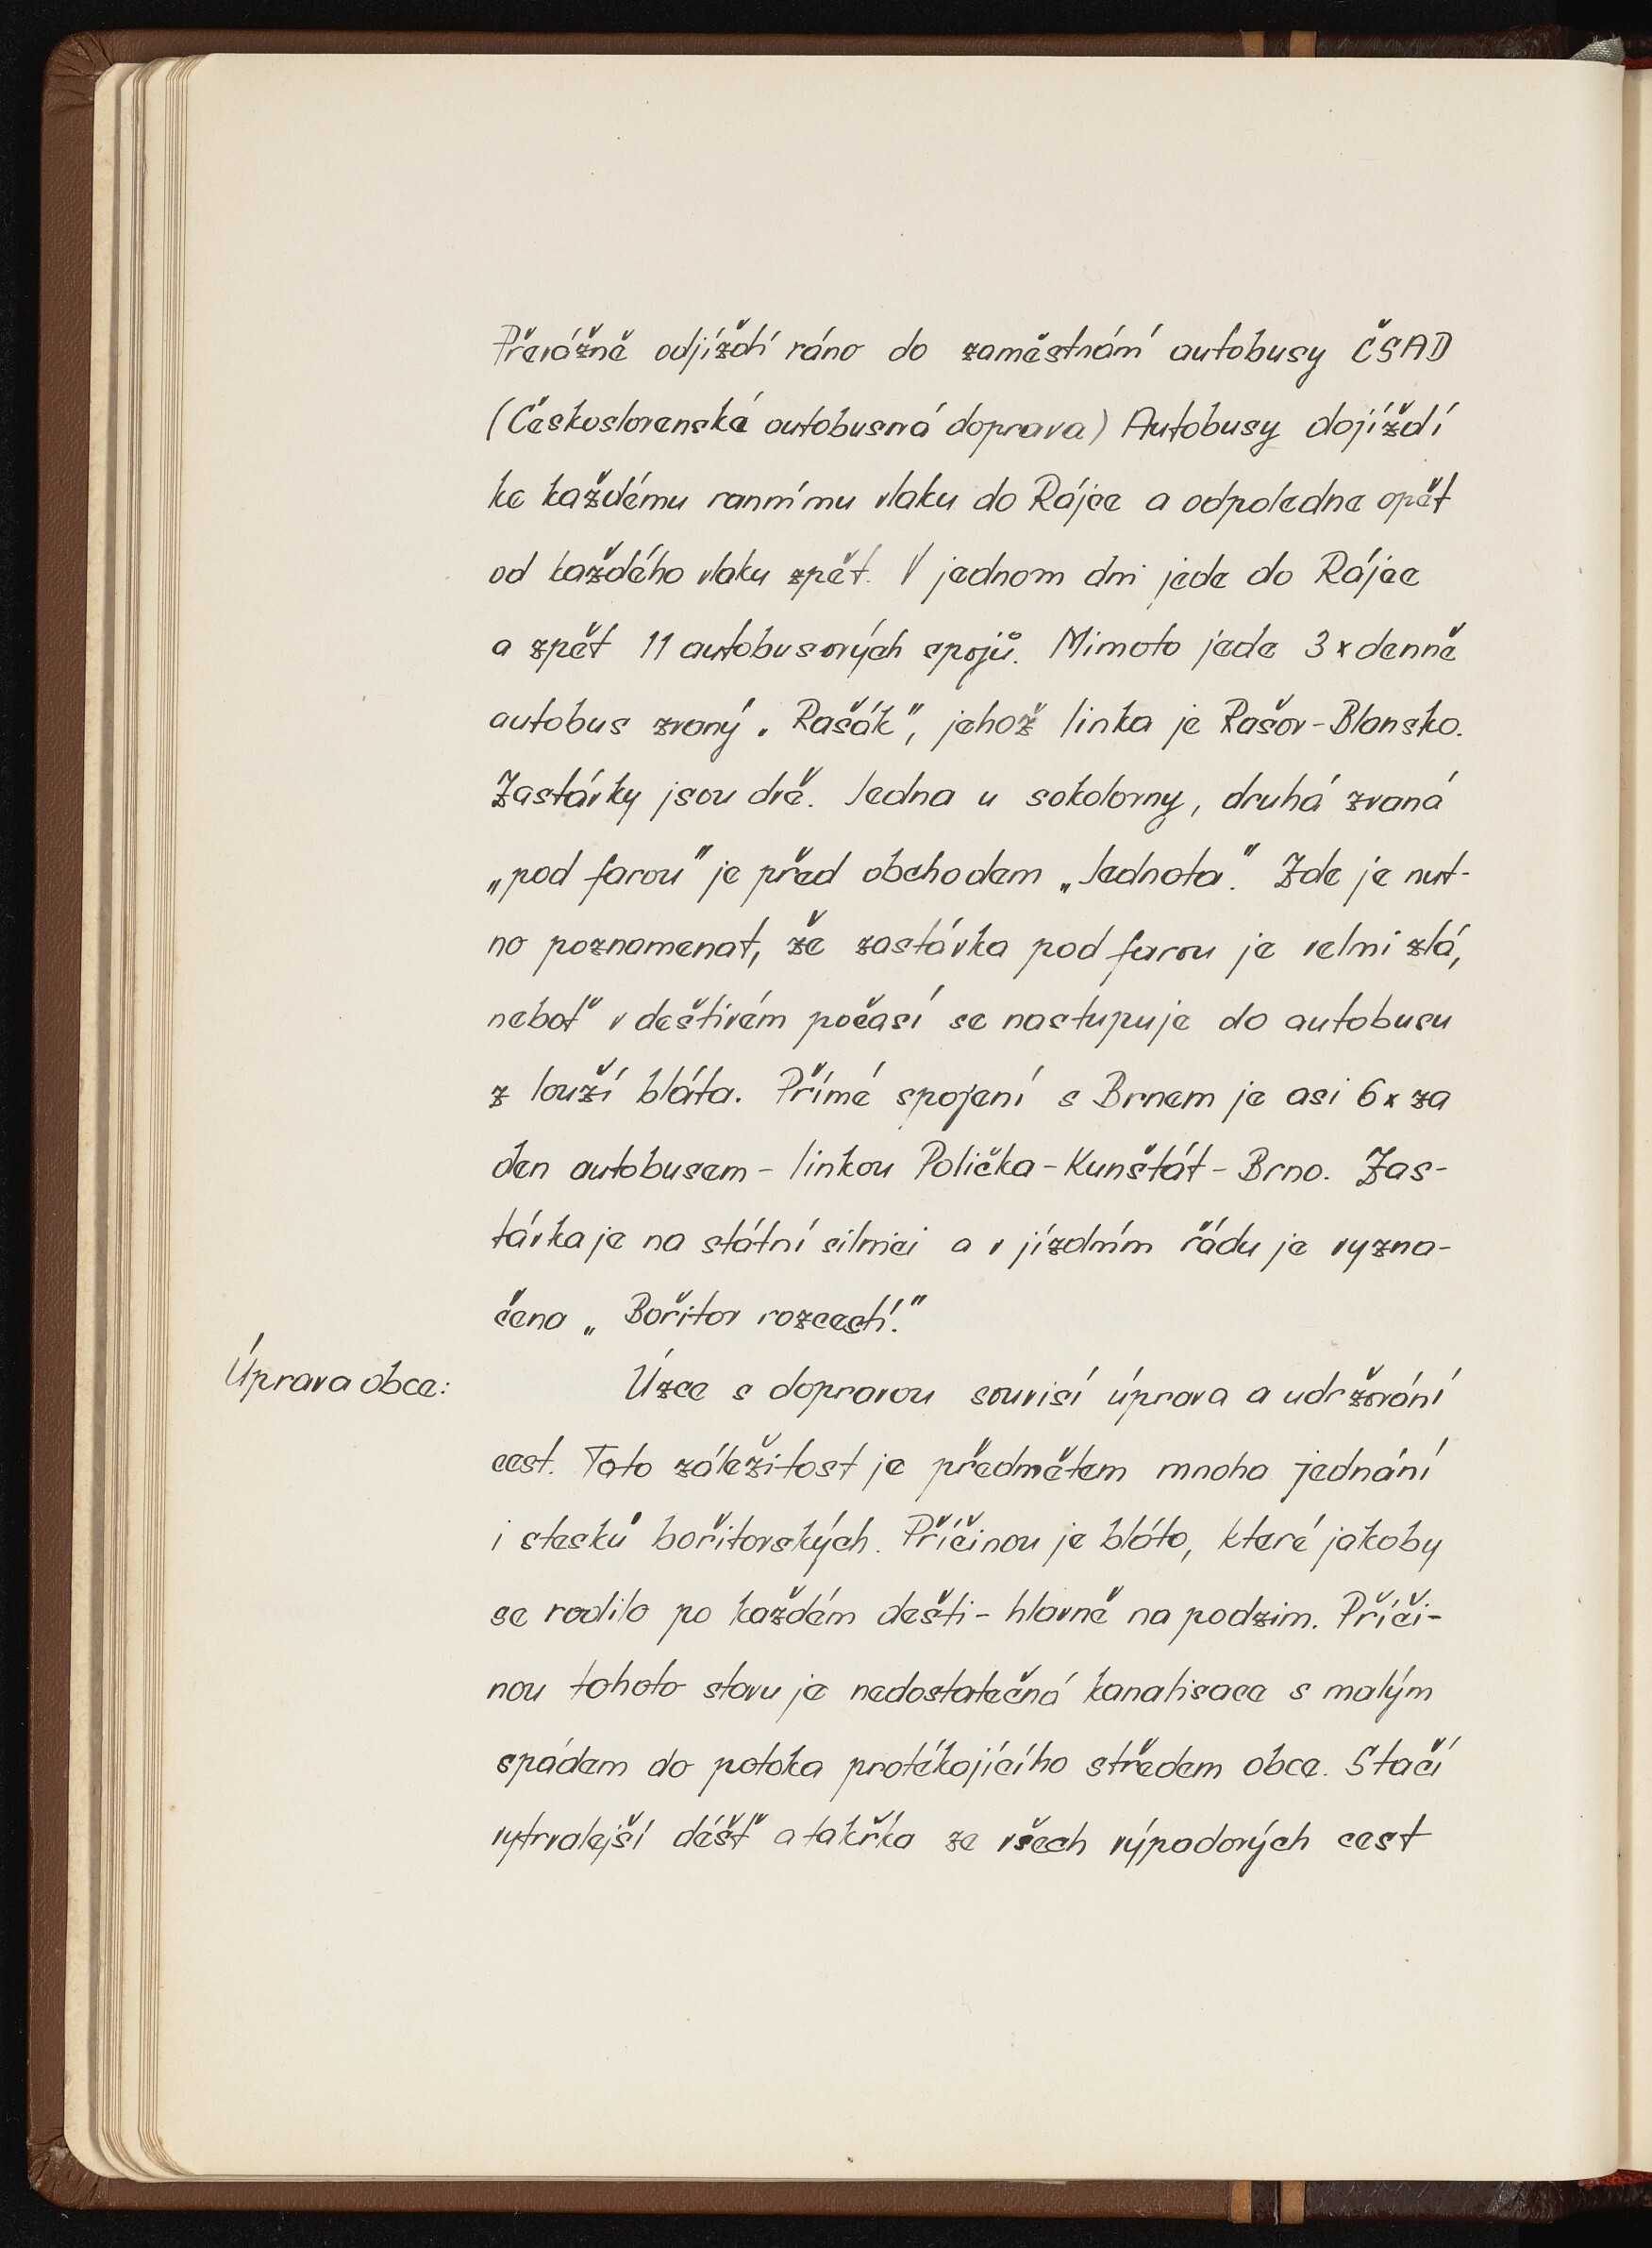 Převážně odjíždí ráno do zaměstnání autobusy ČSAD
(Československá autobusová doprava) Autobusy dojíždí
ke každému rannímu vlaku do Rájce a odpoledne opět
od každého vlaku zpět. V jednom dni jede do Rájce
a zpět 11 autobusových spojů. Mimoto jede 3x denně
autobus zvaný „Rašák", jehož linka je Rašov-Blansko.
Zastávky jsou dvě. Jedna u sokolovny, druhá zvaná
„pod farou" je před obchodem „Jednota". Zde je nut-
no poznamenat, že zastávka pod farou je velmi zlá,
neboť v deštivém počasí se nastupuje do autobusu
z louží bláta. Přímé spojení s Brnem je asi 6x za
den autobusem - linkou Polička-Kunštát-Brno. Zas-
távka je na státní silnici a v jízdním řádu je vyzna-
čena „Bořitov rozcestí."
Úprava obce:
Úzce s dopravou souvisí úprava a udržování
cest. Tato záležitost je předmětem mnoha jednání
i stesků bořitovských. Příčinou je bláto, které jakoby
se rodilo po každém dešti - hlavně na podzim. Příči-
nou tohoto stavu je nedostatečná kanalisace s malým
spádem do potoka protékajícího středem obce. Stačí
vytrvalejší déšť a takřka ze všech výpadových cest